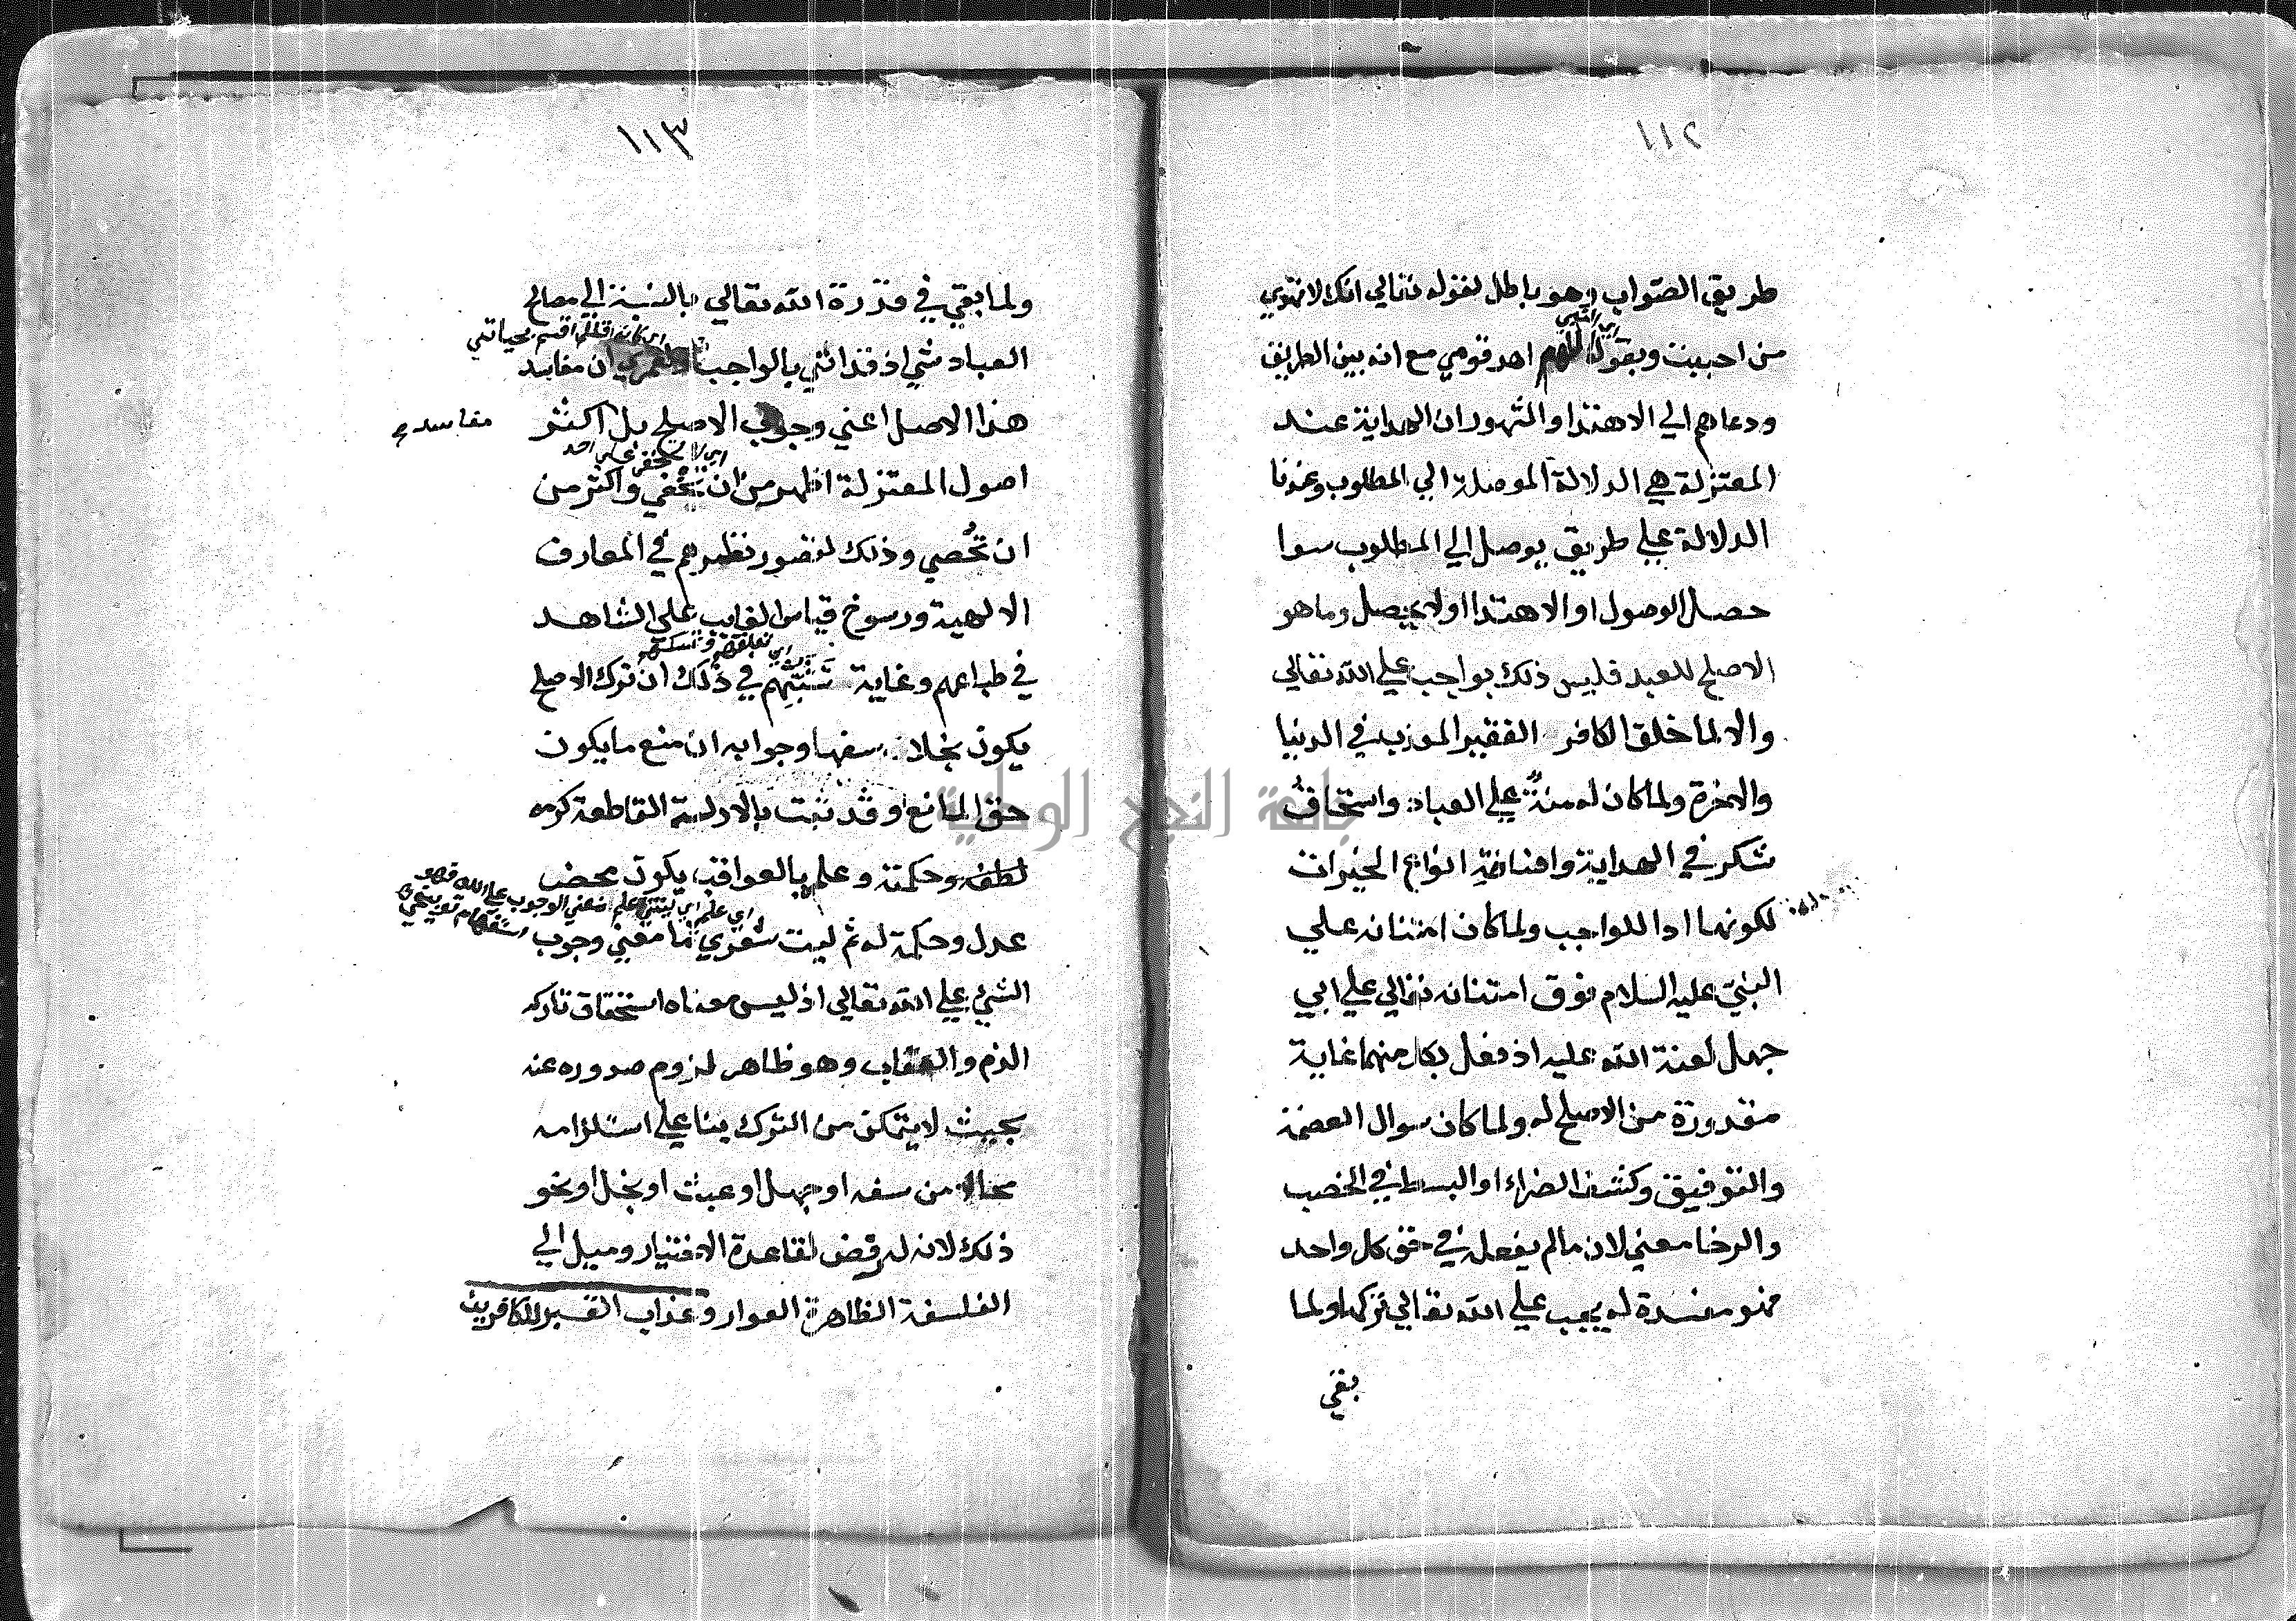 ١١٢
طريق الصواب وهو باطل لقوله تعالي انك لا تهدي
اي النبي
من احببت وبقوله اللهم اهد قومي مع انه بين الطريق
ودعاهم الي الاهتدا والمشهور ان الهداية عند
المعتزلة هي الدلالة الموصلة الي المطلوب وعندنا
الدلالة علي طريق يوصل الي المطلوب سوا
حصل الوصول او الاهتدا اولا يحصل وما هو
الاصلح للعبد فليس ذلك بواجب علي الله تعالي
والا لما خلق الكافر الفقير المعذب في الدنيا
والاخرة ولما كان له منة علي العباد واستحاق
شكر في الهداية وافاضة انواع الخيرات
لكونها ادا للواجب ولما كان امتنانه علي
النبي عليه السلام فوق امتنانه تعالي علي ابي
جهل لعنة الله عليه اذ فعل بكل منهما غاية
مقدورة من الاصلح له ولما كان سوال العصمة
والتوفيق وكشف الضراء والبسط في الخصب
والرخا معني لان مالم يفعله في حق كل واحد
فهو مفسدة له يجب علي الله تعالي تركها ولما
بقي
١١٣
ولما بقي في قدرة الله تعالي بالنسبة الي مصالح
اي كانه قال اقسم بحياتي
العباد شي اذ قد اتي بالواجب ولعمري ان مفاسد
هذا الاصل اعني وجوب الاصلح بل اكثر
مفاسده
اي لا يخفي علي احد
اصول المعتزلة اظهر من ان يخفي واكثر من
ان تحصي وذلك لقصور نظرهم في المعارف
الالهية ورسوخ قياس الغايب علي الشاهد
اي تعلقهم وتمسكهم
في طباعهم وغاية تشبثهم في ذلك ان ترك الاصلح
يكون بخلا سفها وجوابه ان منع ما يكون
حق المانع وقد ثبت بالادلة القاطعة كرمه
لطفه وحكمته وعلمه بالعواقب يكون محض
اي علم اي ليتني علم معني الوجوب علي الله فهو
استفهام توبيخي
عدل وحكمة له ثم ليت شعري ما معني وجوب
الشي علي الله تعالي اذ ليس معناه استحقاق تاركه
الذم والعقاب وهو ظاهر لزوم صدوره عنه
بحيث لا يتمكن من الترك بنا علي استلزامه
محالا من سفه او جهل او عبث او بخل او نحو
ذلك لانه له رفض لقاعدة الاختيار وميل الي
الفلسفة الظاهرة العوار وعذاب القبر للكافرين
جامعة النجاح الوطنية